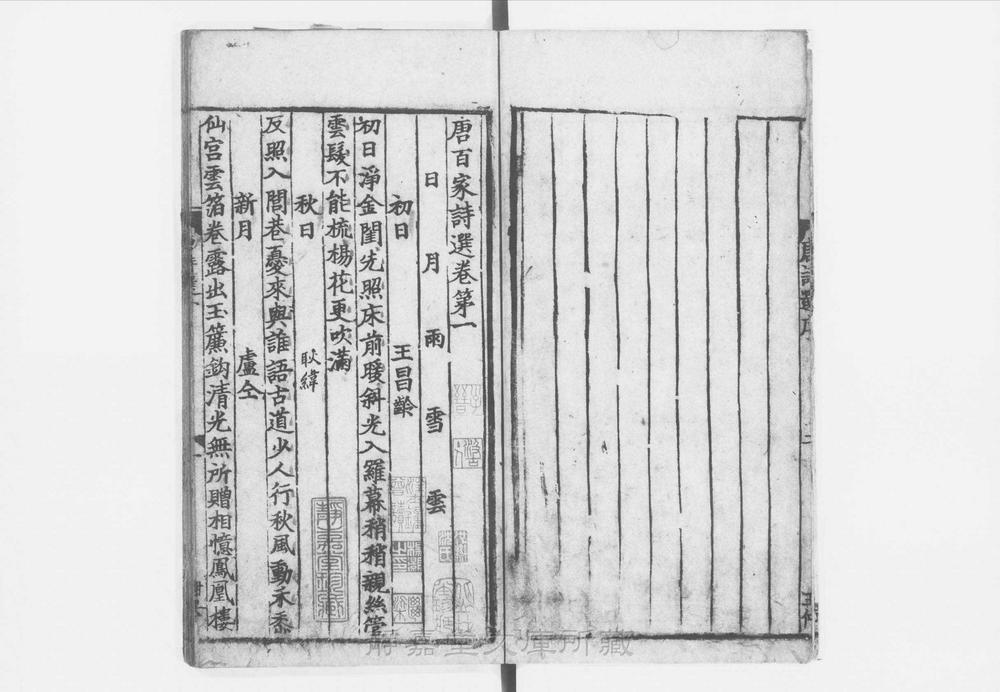 唐百家詩選卷第一
日 月 雨 雪 雲
初日 王昌齡
初日淨金閨先照床前暖斜光入羅幕稍稍親絲管
雲髮不能梳楊花更吹滿
秋日 耿緯
反照入閭巷憂來與誰語古道少人行秋風動禾黍
新月 盧仝
仙宮雲箔卷露出玉簾鈎清光無所贈相憶鳳凰樓
靜嘉堂文庫所藏